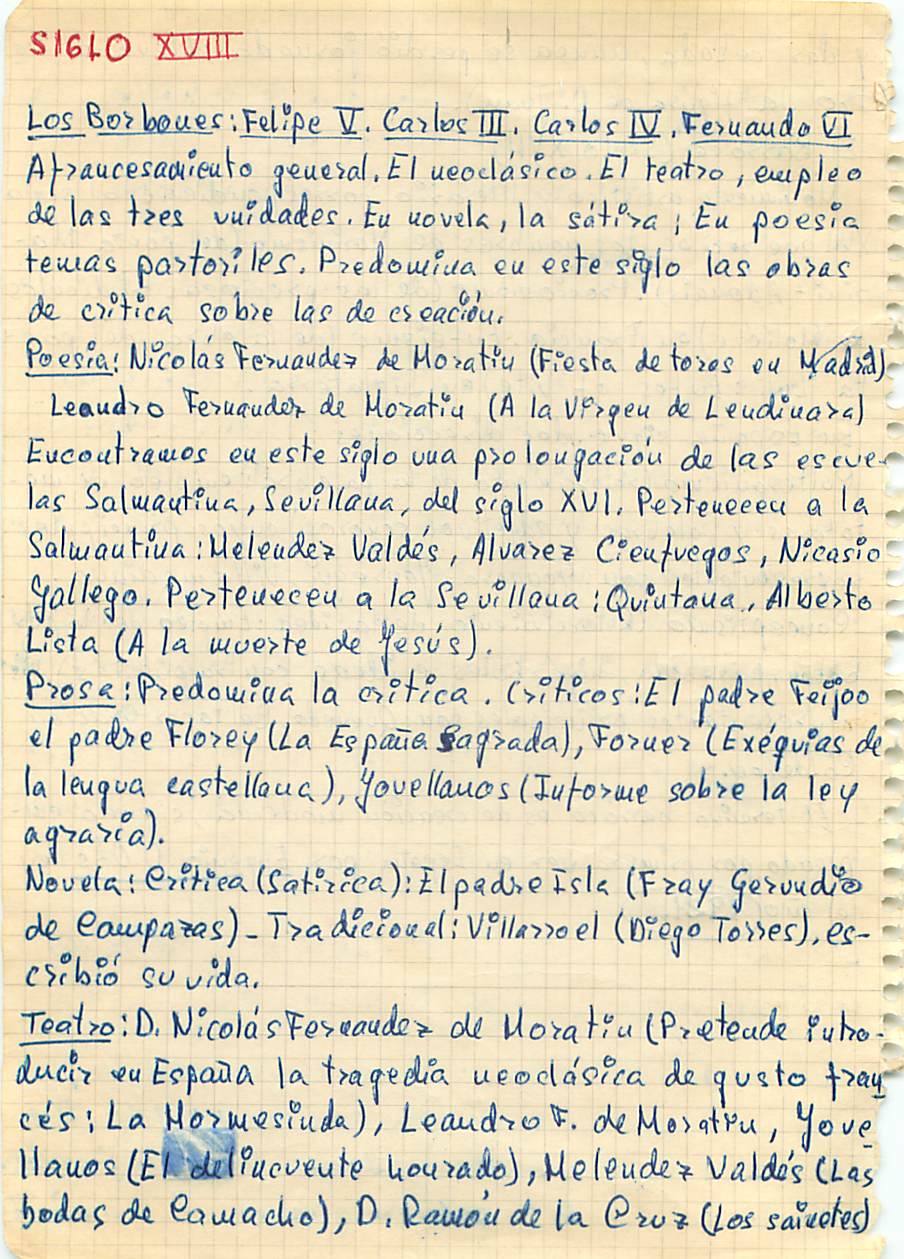 SIGLO XVIII
Los Borbones: Felipe V. Carlos III. Carlos IV. Fernando VI
Afrancesamiento general. El neoclásico. El teatro, empleo
de las tres unidades. En novela, la sátira; En poesia
temas pastoriles. Predomina en este siglo las obras
de crítica sobre las de creación.
Poesia: Nicolás Fernandez de Moratin (Fiesta de toros en Madrid)
Leandro Fernandez de Moratin (A la Virgen de Lendinara)
Encontramos en este siglo una prolongación de las escue-
las Salmantina, Sevillana, del siglo XVI. Pertenecen a la
Salmantina: Melendez Valdés, Alvarez Cienfuegos, Nicasio
Gallego. Pertenecen a la Sevillana: Quintana, Alberto
Lista (A la muerte de Jesús).
Prosa: Predomina la crítica. Críticos: El padre Feijoo
el padre Florey (La España Sagrada), Forner (Exéquias de
la lengua castellana), Jovellanos (Informe sobre la ley
agraria).
Novela: Critica (Satirica): El padre Isla (Fray Gerundio
de Campazas) - Tradicional: Villarroel (Diego Torres), es-
cribió su vida.
Teatro: D. Nicolás Fernandez de Moratin (Pretende intro-
ducir en España la tragedia neoclásica de gusto fran
cés: La Hormesinda), Leandro F. de Moratin, Jove
llanos (El delincuente honrado), Melendez Valdés (Las
bodas de Camacho), D. Ramón de la Cruz (Los sainetes)